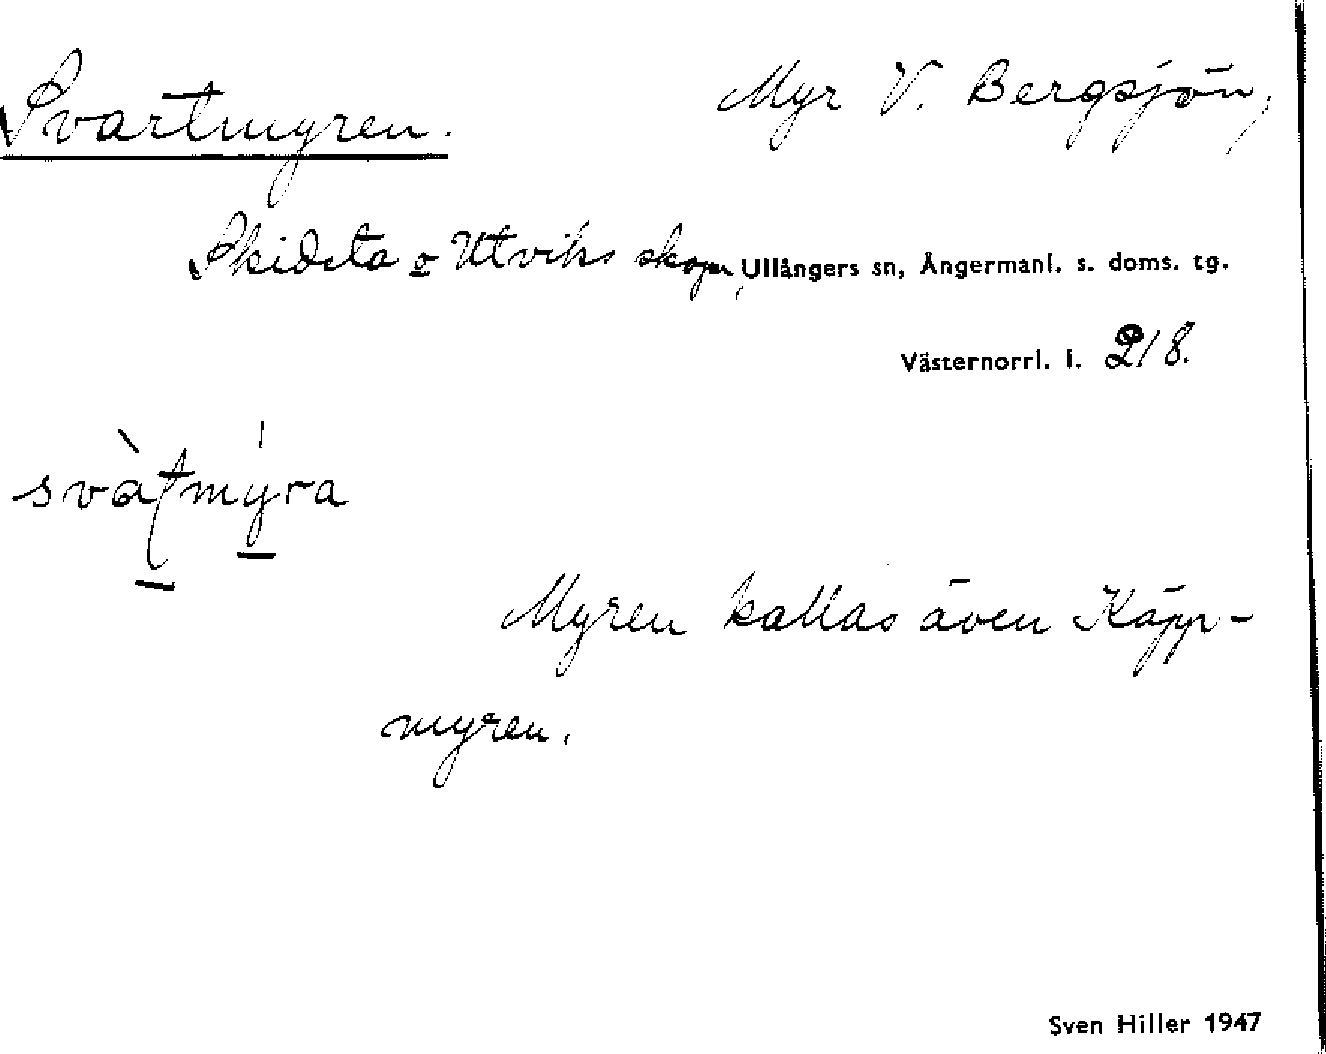 Svartmyren. Myr V. Bergsjön,
Skidsta o Utviks skogar, Ullångers sn, Ångermanl. s. doms. tg.
Västernorrl. l. 218.
svàtmýra
Myren kallas även Käpp-
myren.
Sven Hiller 1947